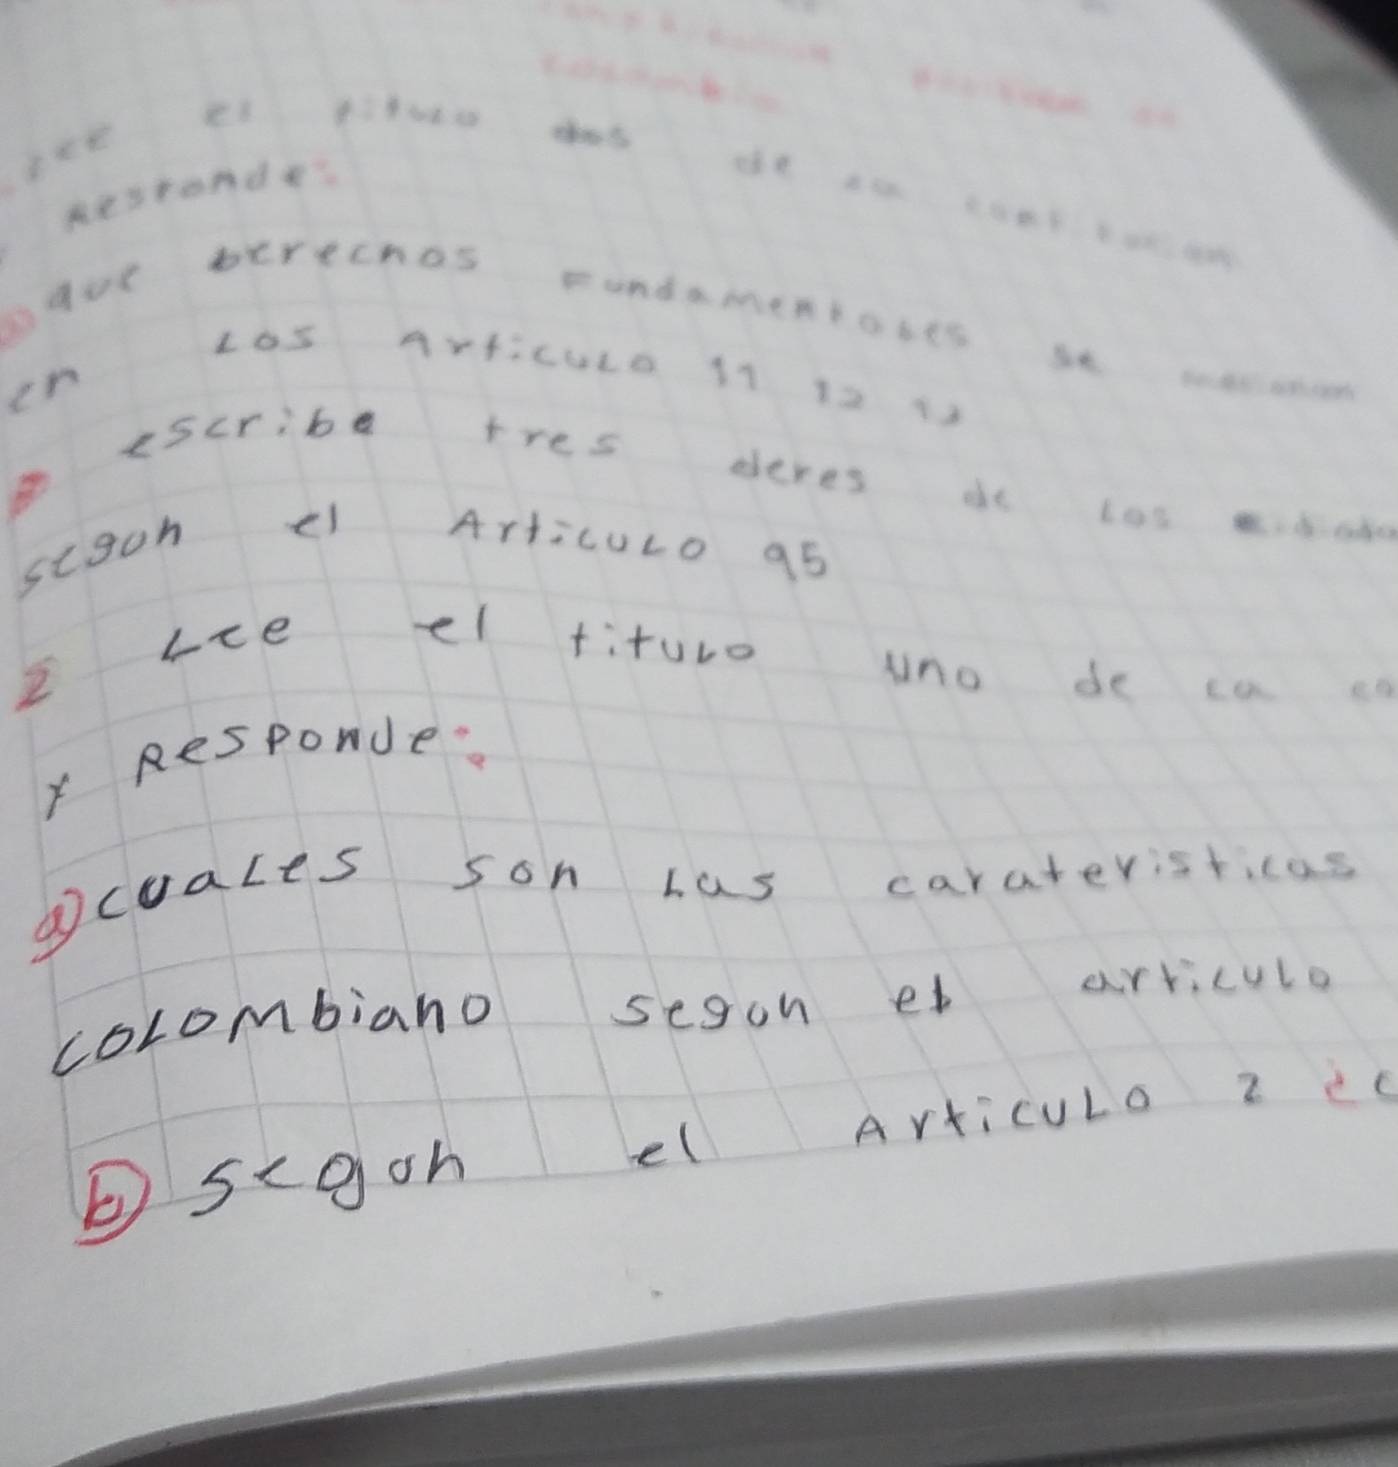 colombia
Lee el titulo dos de la
Responde:
que Derechos Fundamentales se
en Los Articulo 11 12 13
escribe tres deres de Los
segun el Articulo 95
2 Lee el titulo uno de la co
y Responde:
a) cuales son Las carateristicas
colombiano segun el articulo
b) segun el Articulo 2